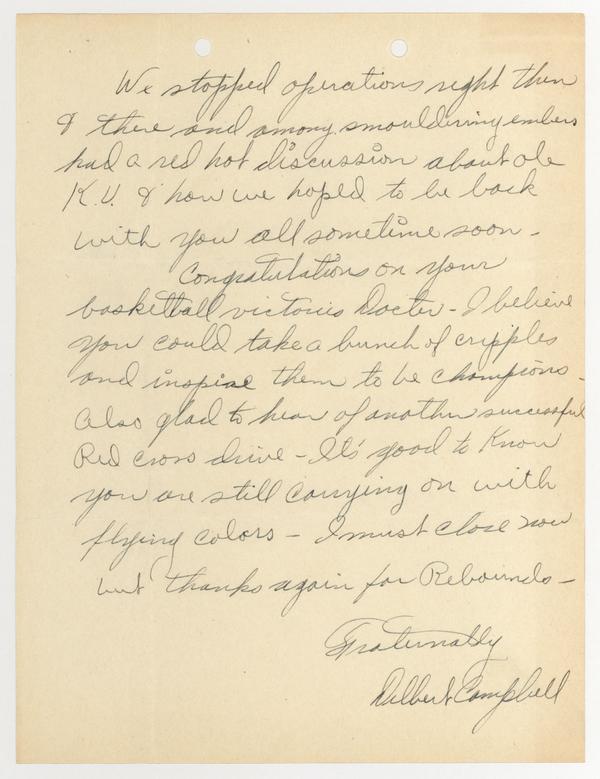 We stopped operations right then
& there and among smouldering embers
had a red hot discussion about ole
K.U. & how we hoped to be back
with you all sometime soon -
Congratulations on your
basketball victories Docter - I believe
you could take a bunch of cripples
and inspire them to be champions -
Also glad to hear of another successful
Red cross drive - It's good to know
you are still carrying on with
flying colors - I must close now
but thanks again for Rebounds -
Fraternally
Delbert Campbell